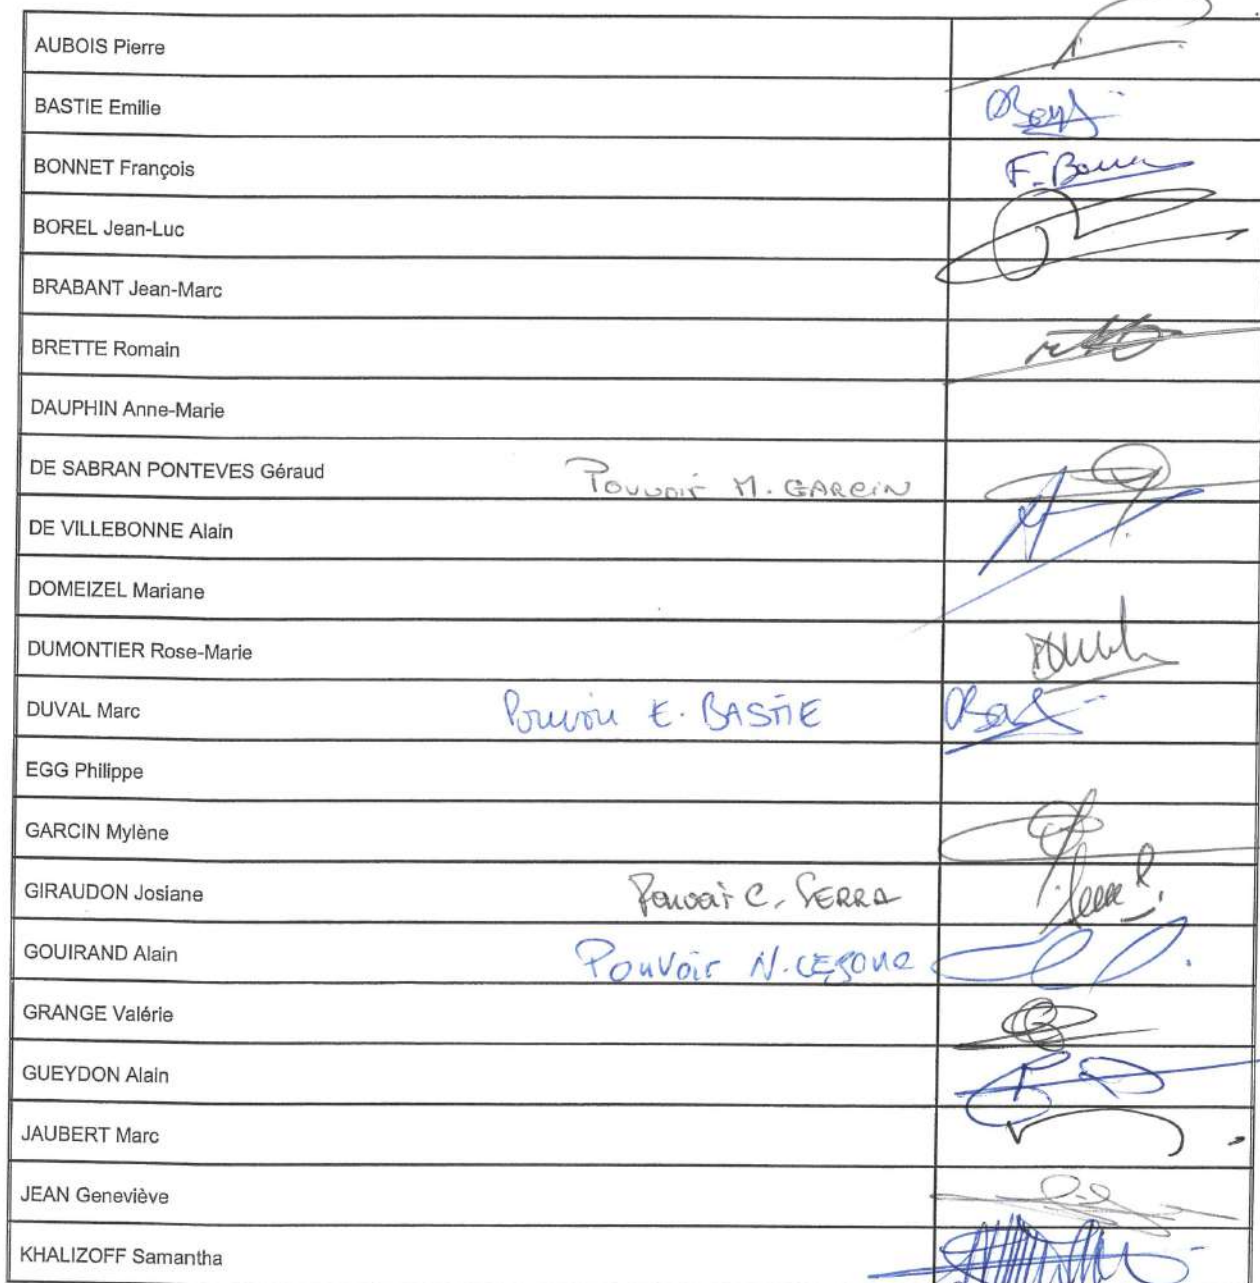 AUBOIS Pierre
BASTIE Emilie
BONNET François
F. Bonnet
BOREL Jean-Luc
BRABANT Jean-Marc
BRETTE Romain
DAUPHIN Anne-Marie
DE SABRAN PONTEVES Géraud Pouvoir M. GARCIN
DE VILLEBONNE Alain
DOMEIZEL Mariane
DUMONTIER Rose-Marie
DUVAL Marc Pouvoir E. BASTIE
EGG Philippe
GARCIN Mylène
GIRAUDON Josiane Pouvoir C. SERRA
GOUIRAND Alain Pouvoir N.
GRANGE Valérie
GUEYDON Alain
JAUBERT Marc
JEAN Geneviève
KHALIZOFF Samantha